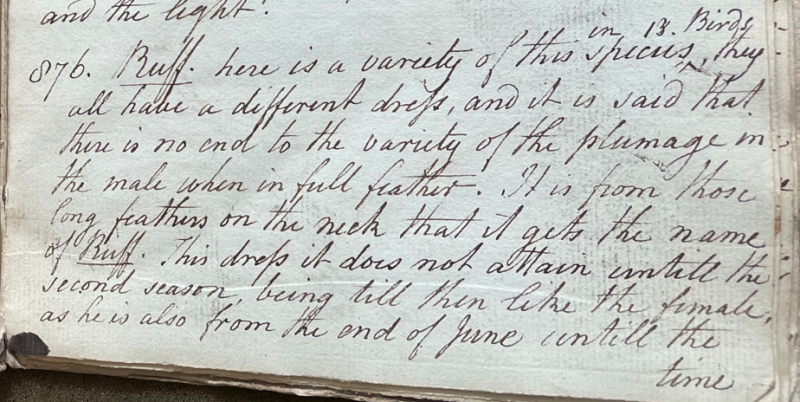 and the light.
in 13. Birds
876. Ruff. here is a variety of this species, they
all have a different dress, and it is said that
there is no end to the variety of the plumage in
the male when in full feather. It is from those
long feathers on the neck that it gets the name
of Ruff. This dress it does not attain untill the
second season, being till then like the female,
as he is also from the end of June untill the
time